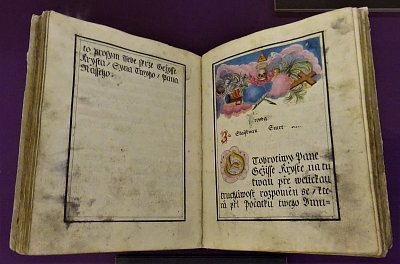 to prosym tebe skrze Gežisse
Krysta / Syna Twého / Pána
Nassého.
Za Sstiastnau Smrt
O Dobrotiwy Pane
Gežisse Kryste na tu
twau pře welikau
truchliwost rozpomeň se / kte-
rú při Počátku twého Vmu-